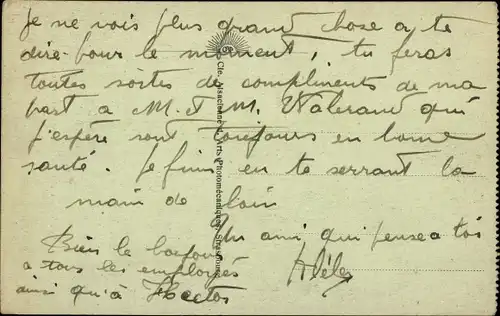 Je ne vois plus grand chose a te
dire pour le moment, tu feras
toutes sortes de compliments de ma
part a M. T. M. Valerand qui
j'espère sont toujours en bonne
santé. Je finis en te serrant la
main de loin
Un ami qui pense a toi
Bien le bonjour
a tous les employés
ainsi qu'à Hector
Cie. Alsacienne d. Arts Photomécaniques, Strasbourg